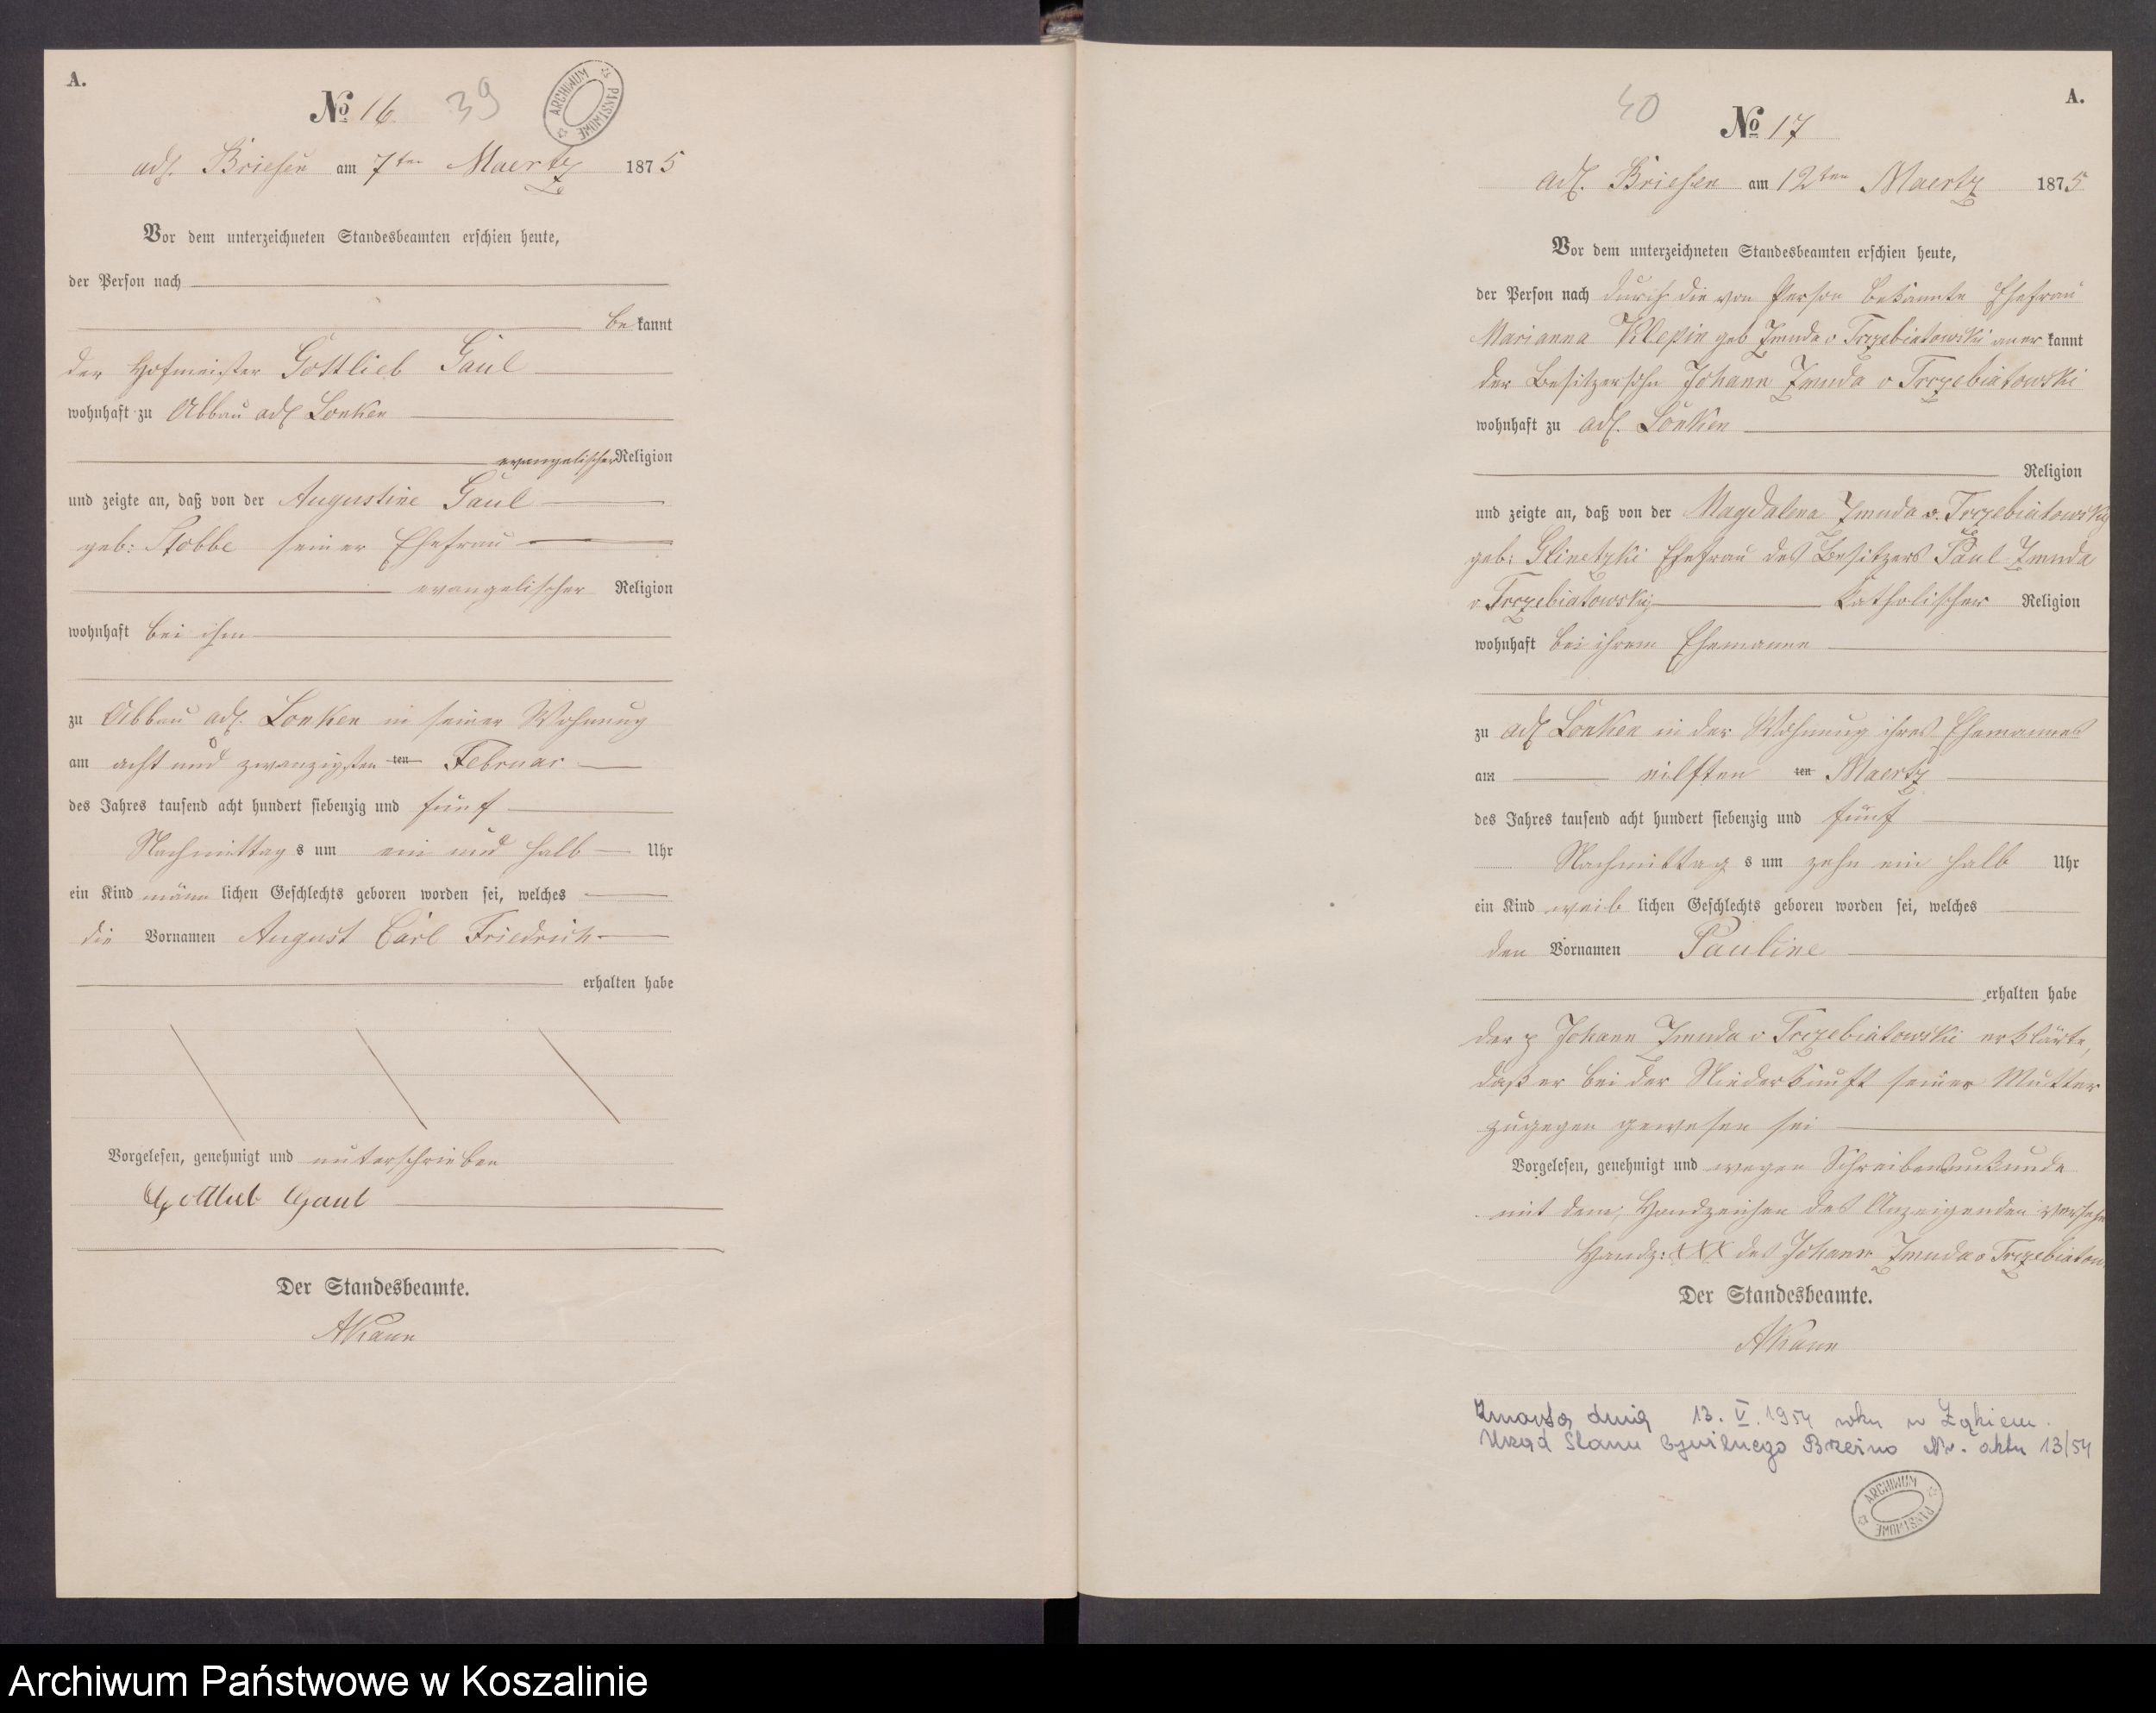 A.
№ 16. 39
ARCHIWUM PAŃSTWOWE
adl. Briesen am 7ten Maertz 1875
Vor dem unterzeichneten Standesbeamten erschien heute,
der Person nach
bekannt
der Hofmeister Gottlieb Gaul
wohnhaft zu Abbau adl Lonken
evangelischer Religion
und zeigte an, daß von der Augustine Gaul
geb: Stobbe seiner Ehefrau
evangelischer Religion
wohnhaft bei ihm
zu Abbau adl. Lonken in seiner Wohnung
am acht und zwanzigsten ten Februar
des Jahres tausend acht hundert siebenzig und fünf
Nachmittags um ein und halb Uhr
ein Kind männlichen Geschlechts geboren worden sei, welches
die Vornamen August Carl Friedrich
erhalten habe
Vorgelesen, genehmigt und unterschrieben
Gottlieb Gaul
Der Standesbeamte.
AKann
A.
40
№ 17
adl. Briesen am 12ten Maertz 1875
Vor dem unterzeichneten Standesbeamten erschien heute,
der Person nach durch die von Person bekannte Ehefrau
Marianna Klepin geb Zmuda v Trzebiatowski anerkannt
der Besitzersohn Johann Zmuda v Trzebiatowski
wohnhaft zu adl. Lonken
Religion
und zeigte an, daß von der Magdalena Zmuda v. Trzebiatowsky
geb: Glinetzki Ehefrau des Besitzers Paul Zmuda
v Trzebiatowsky katholischer Religion
wohnhaft bei ihrem Ehemanne
zu adl Lonken in der Wohnung ihres Ehemannes
am eilften ten Maertz
des Jahres tausend acht hundert siebenzig und fünf
Nachmittags um zehn ein halb Uhr
ein Kind weiblichen Geschlechts geboren worden sei, welches
den Vornamen Pauline
erhalten habe
der Johann Zmuda v Trzebiatowski erklärte,
daß er bei der Niederkunft seiner Mutter
zugegen gewesen sei
Vorgelesen, genehmigt und wegen Schreibensunkunde
mit dem Handzeichen des Anzeigenden versehen
Handz: XXX des Johann Zmuda v Trzebiatow.
Der Standesbeamte.
AKann
Zmarła dnia 13. V. 1954 roku w Łąkiem.
Urząd Stanu Cywilnego Brzeźno Nr. aktu 13/54
ARCHIWUM PAŃSTWOWE
Archiwum Państwowe w Koszalinie